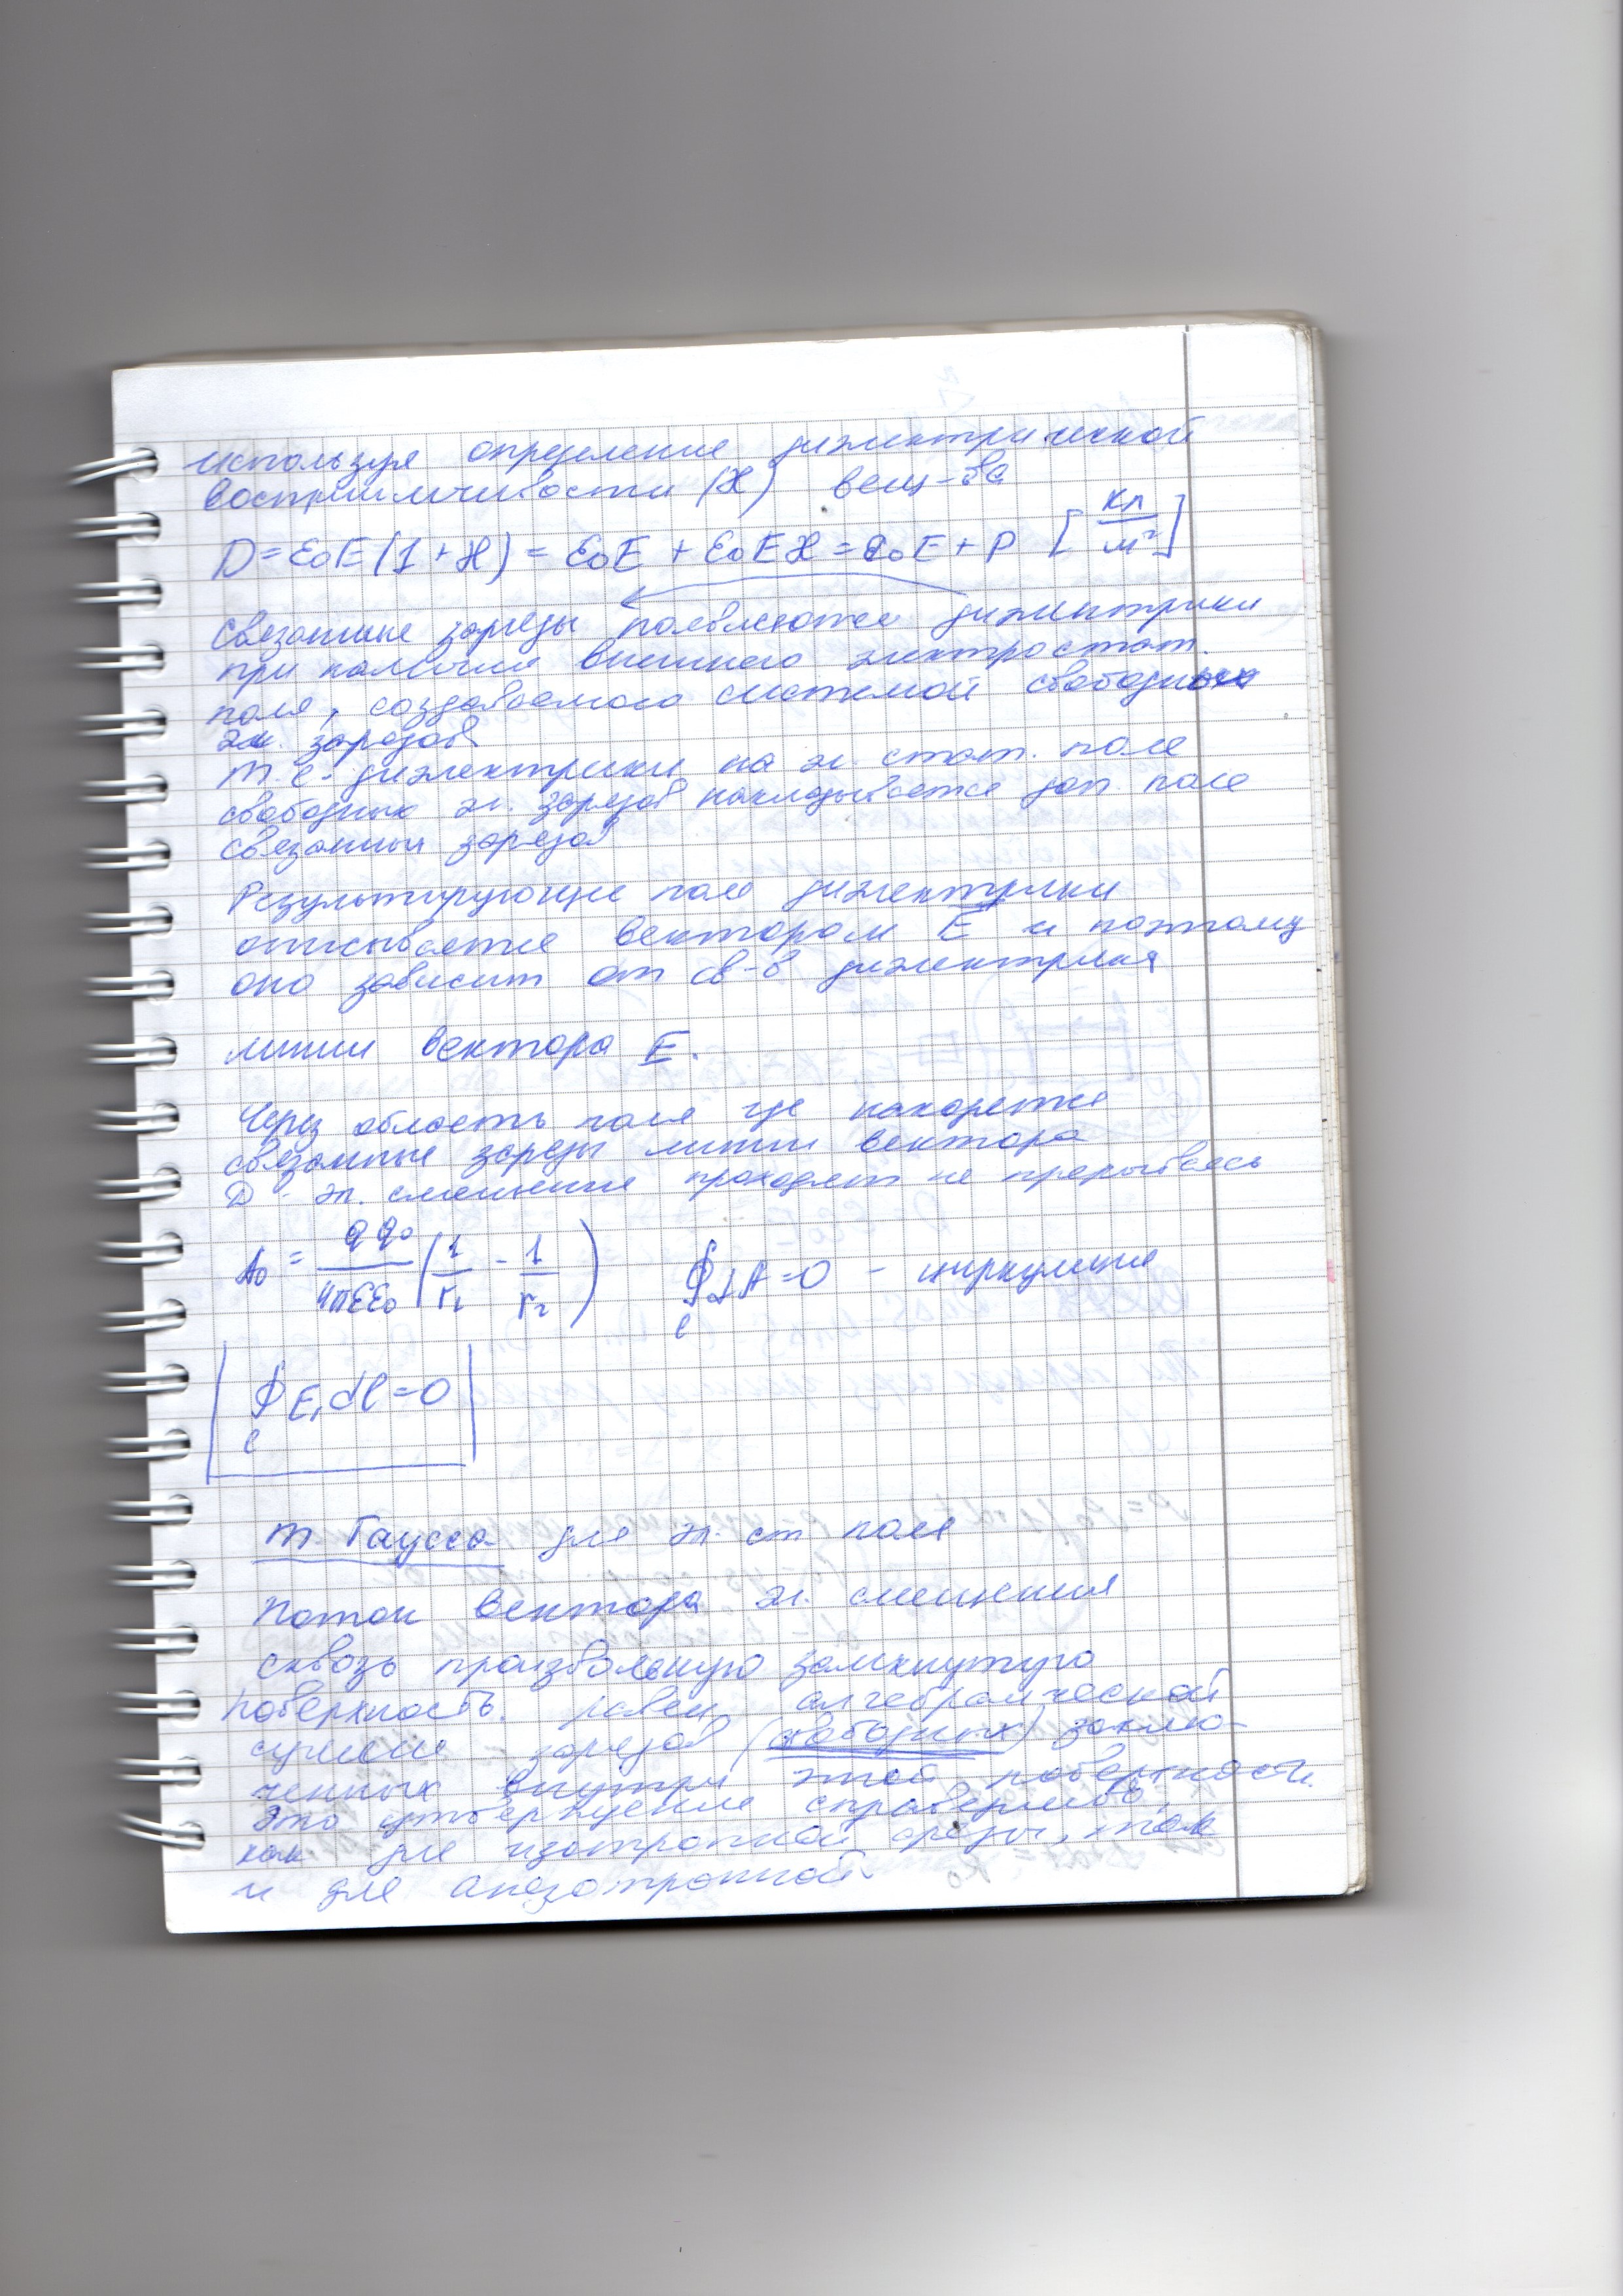 используя определение диэлектрической
восприимчивости (ℋ) вещ-ва
D = ε₀E(1+ℋ) = ε₀E + ε₀Eℋ = ε₀E + P [Кл/м²]
Связанные заряды появляются диэлектрики
при наличии внешнего электростат.
поля, создаваемого системой свободных
эл. зарядов
т.е. диэлектрики на эл. стат. поле
свободных эл. зарядов накладывается доп. поле
связанных зарядов
Результирующие поле диэлектрики
описывается вектором E и поэтому
оно зависит от св-в диэлектрика
линии вектора E.
Через область поля где находятся
связанные заряды линии вектора
D - эл. смещение проходят не прерываясь
A₀ = qq₀/4πεε₀ (1/r₁ - 1/r₂) ∮_c dA = 0 - циркуляция
∮_c E, dl = 0
т. Гаусса для эл. ст поля
поток вектора эл. смещения
сквозь произвольную замкнутую
поверхность. равен алгебраической
сумме зарядов (свободных) заклю-
ченных внутри этой поверхности.
Это утверждение справедливо,
как для изотропной среды, так
и для анизотропной.